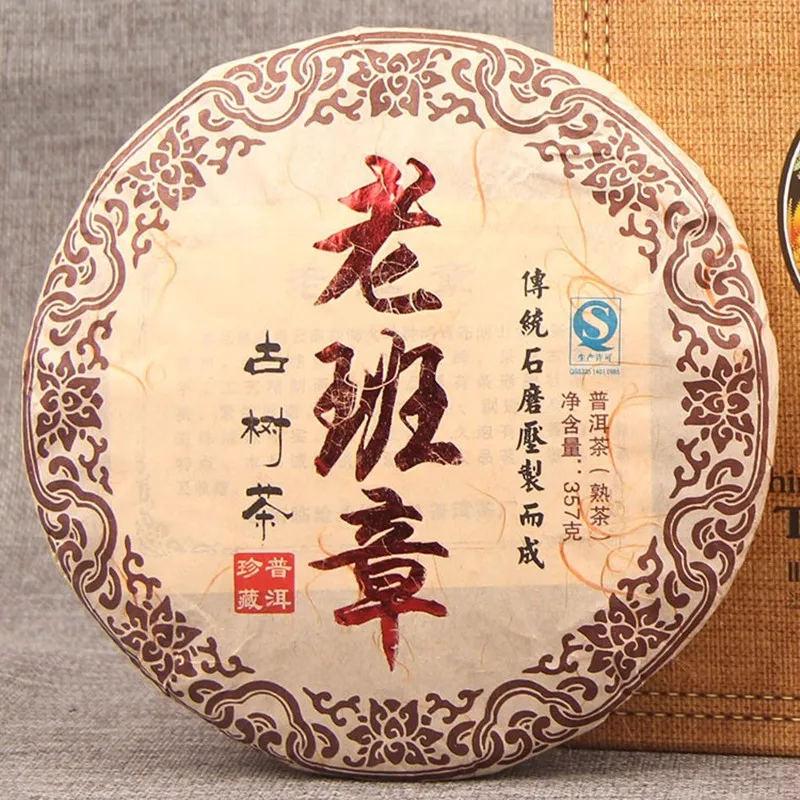 老班章
古树茶
普洱
珍藏
傳統石磨壓製而成
生产许可
普洱茶（熟茶）
净含量：357克